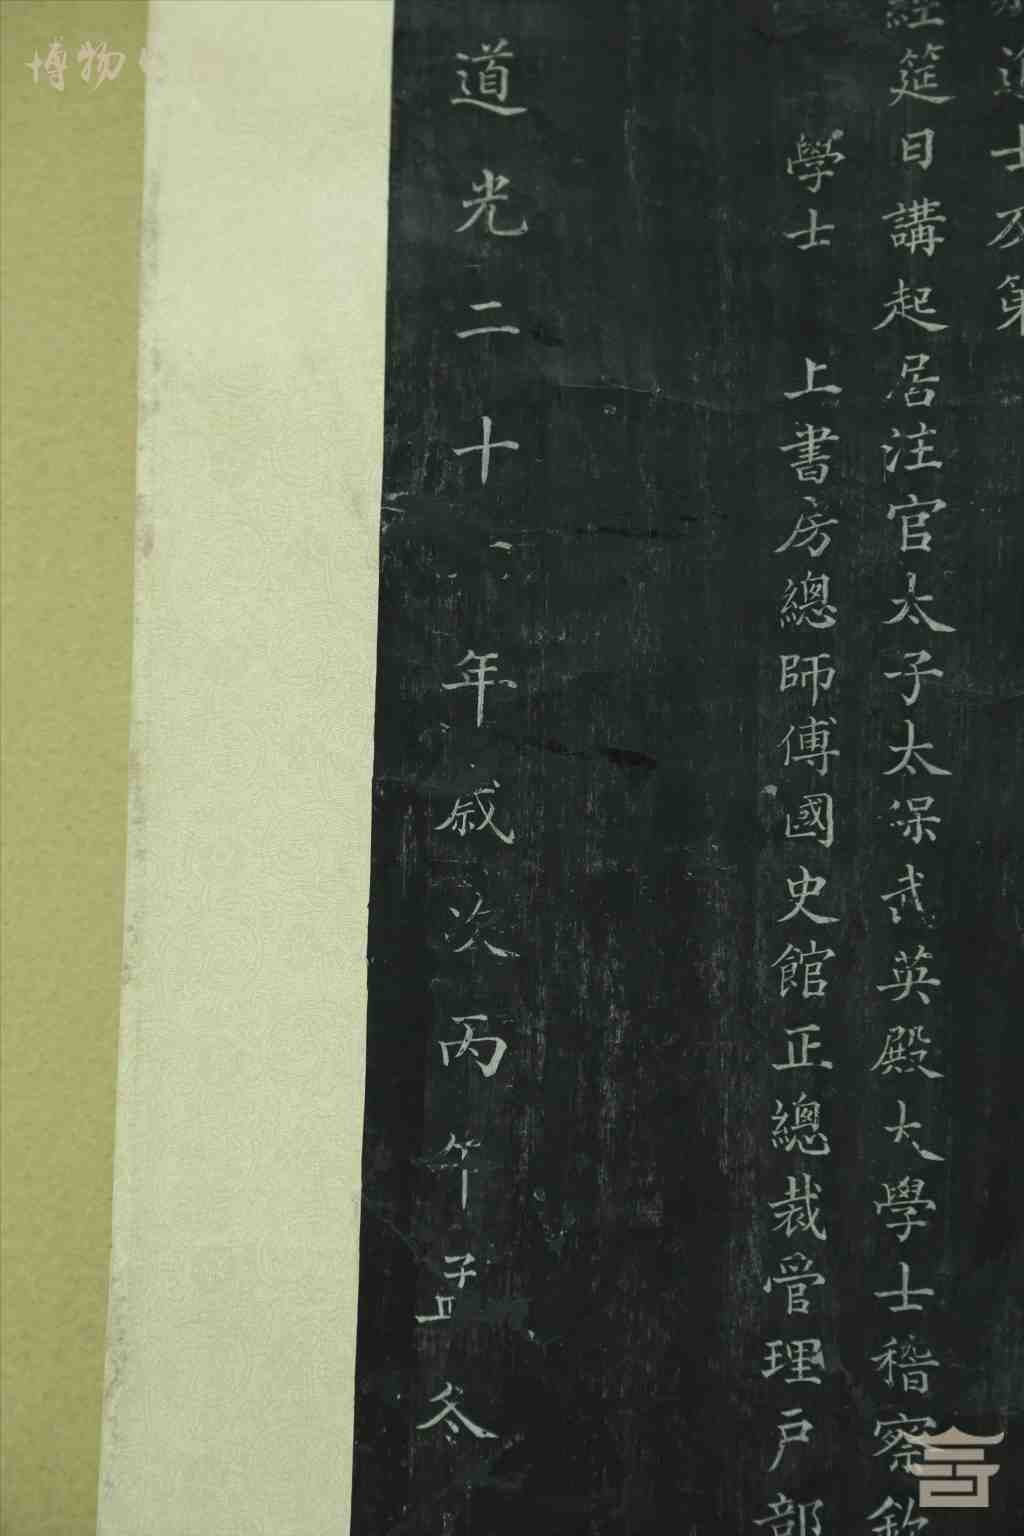 進士及第
經筵日講起居注官太子太保武英殿大學士稽察欽
學士 上書房總師傅國史館正總裁管理戶部
道光二十年歲次丙午孟冬
博物